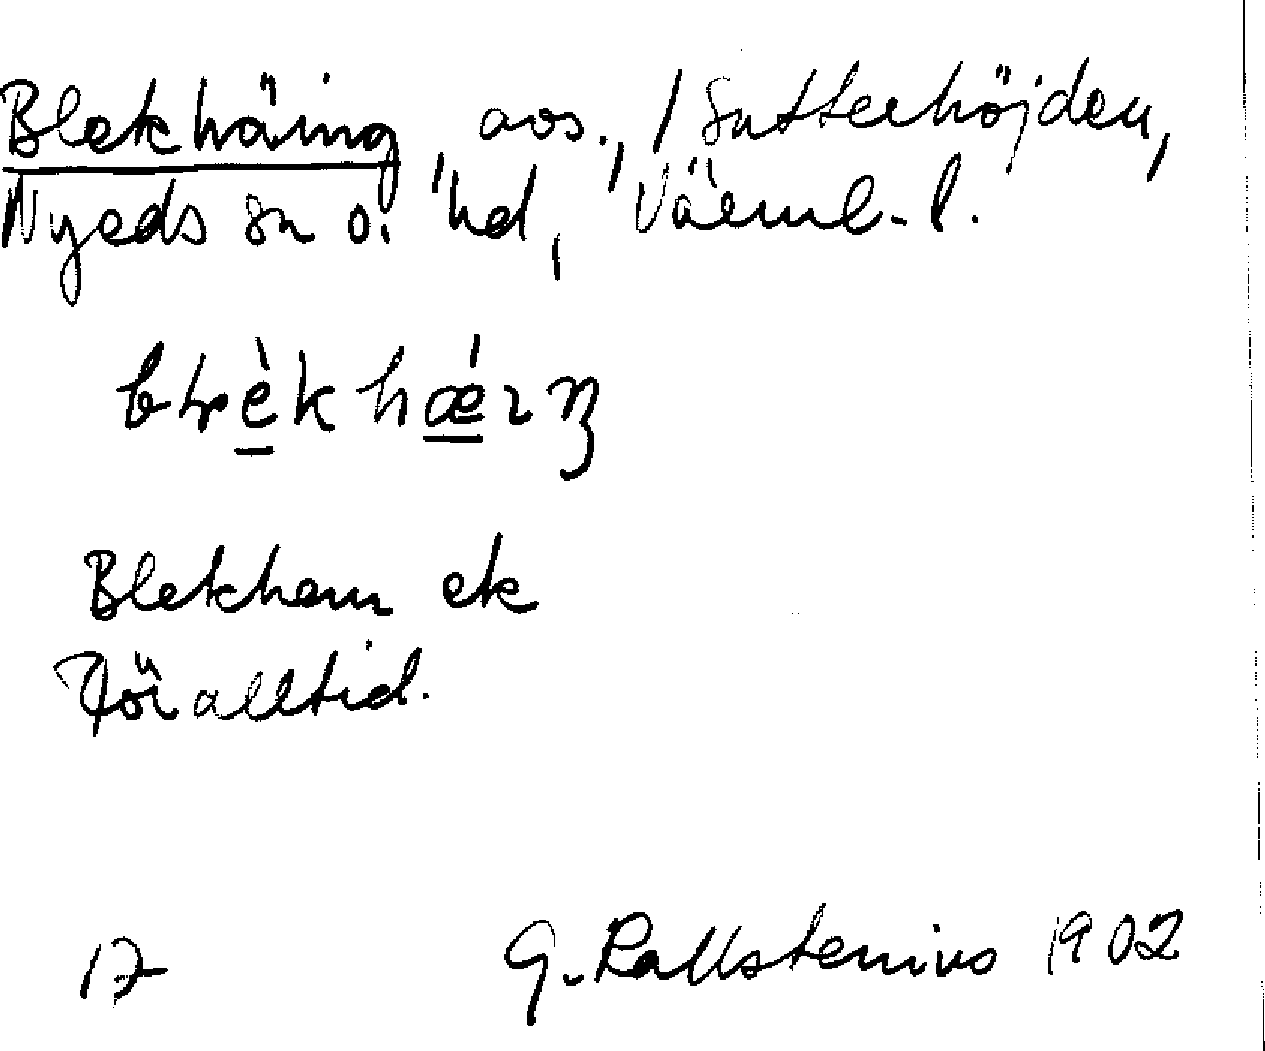 Blekhäing, avs., / Sutterhöjden,
Nyeds sn o. hd, Värml. l.
Blekhem ek
för alltid.
17 G. Kallstenius 1902